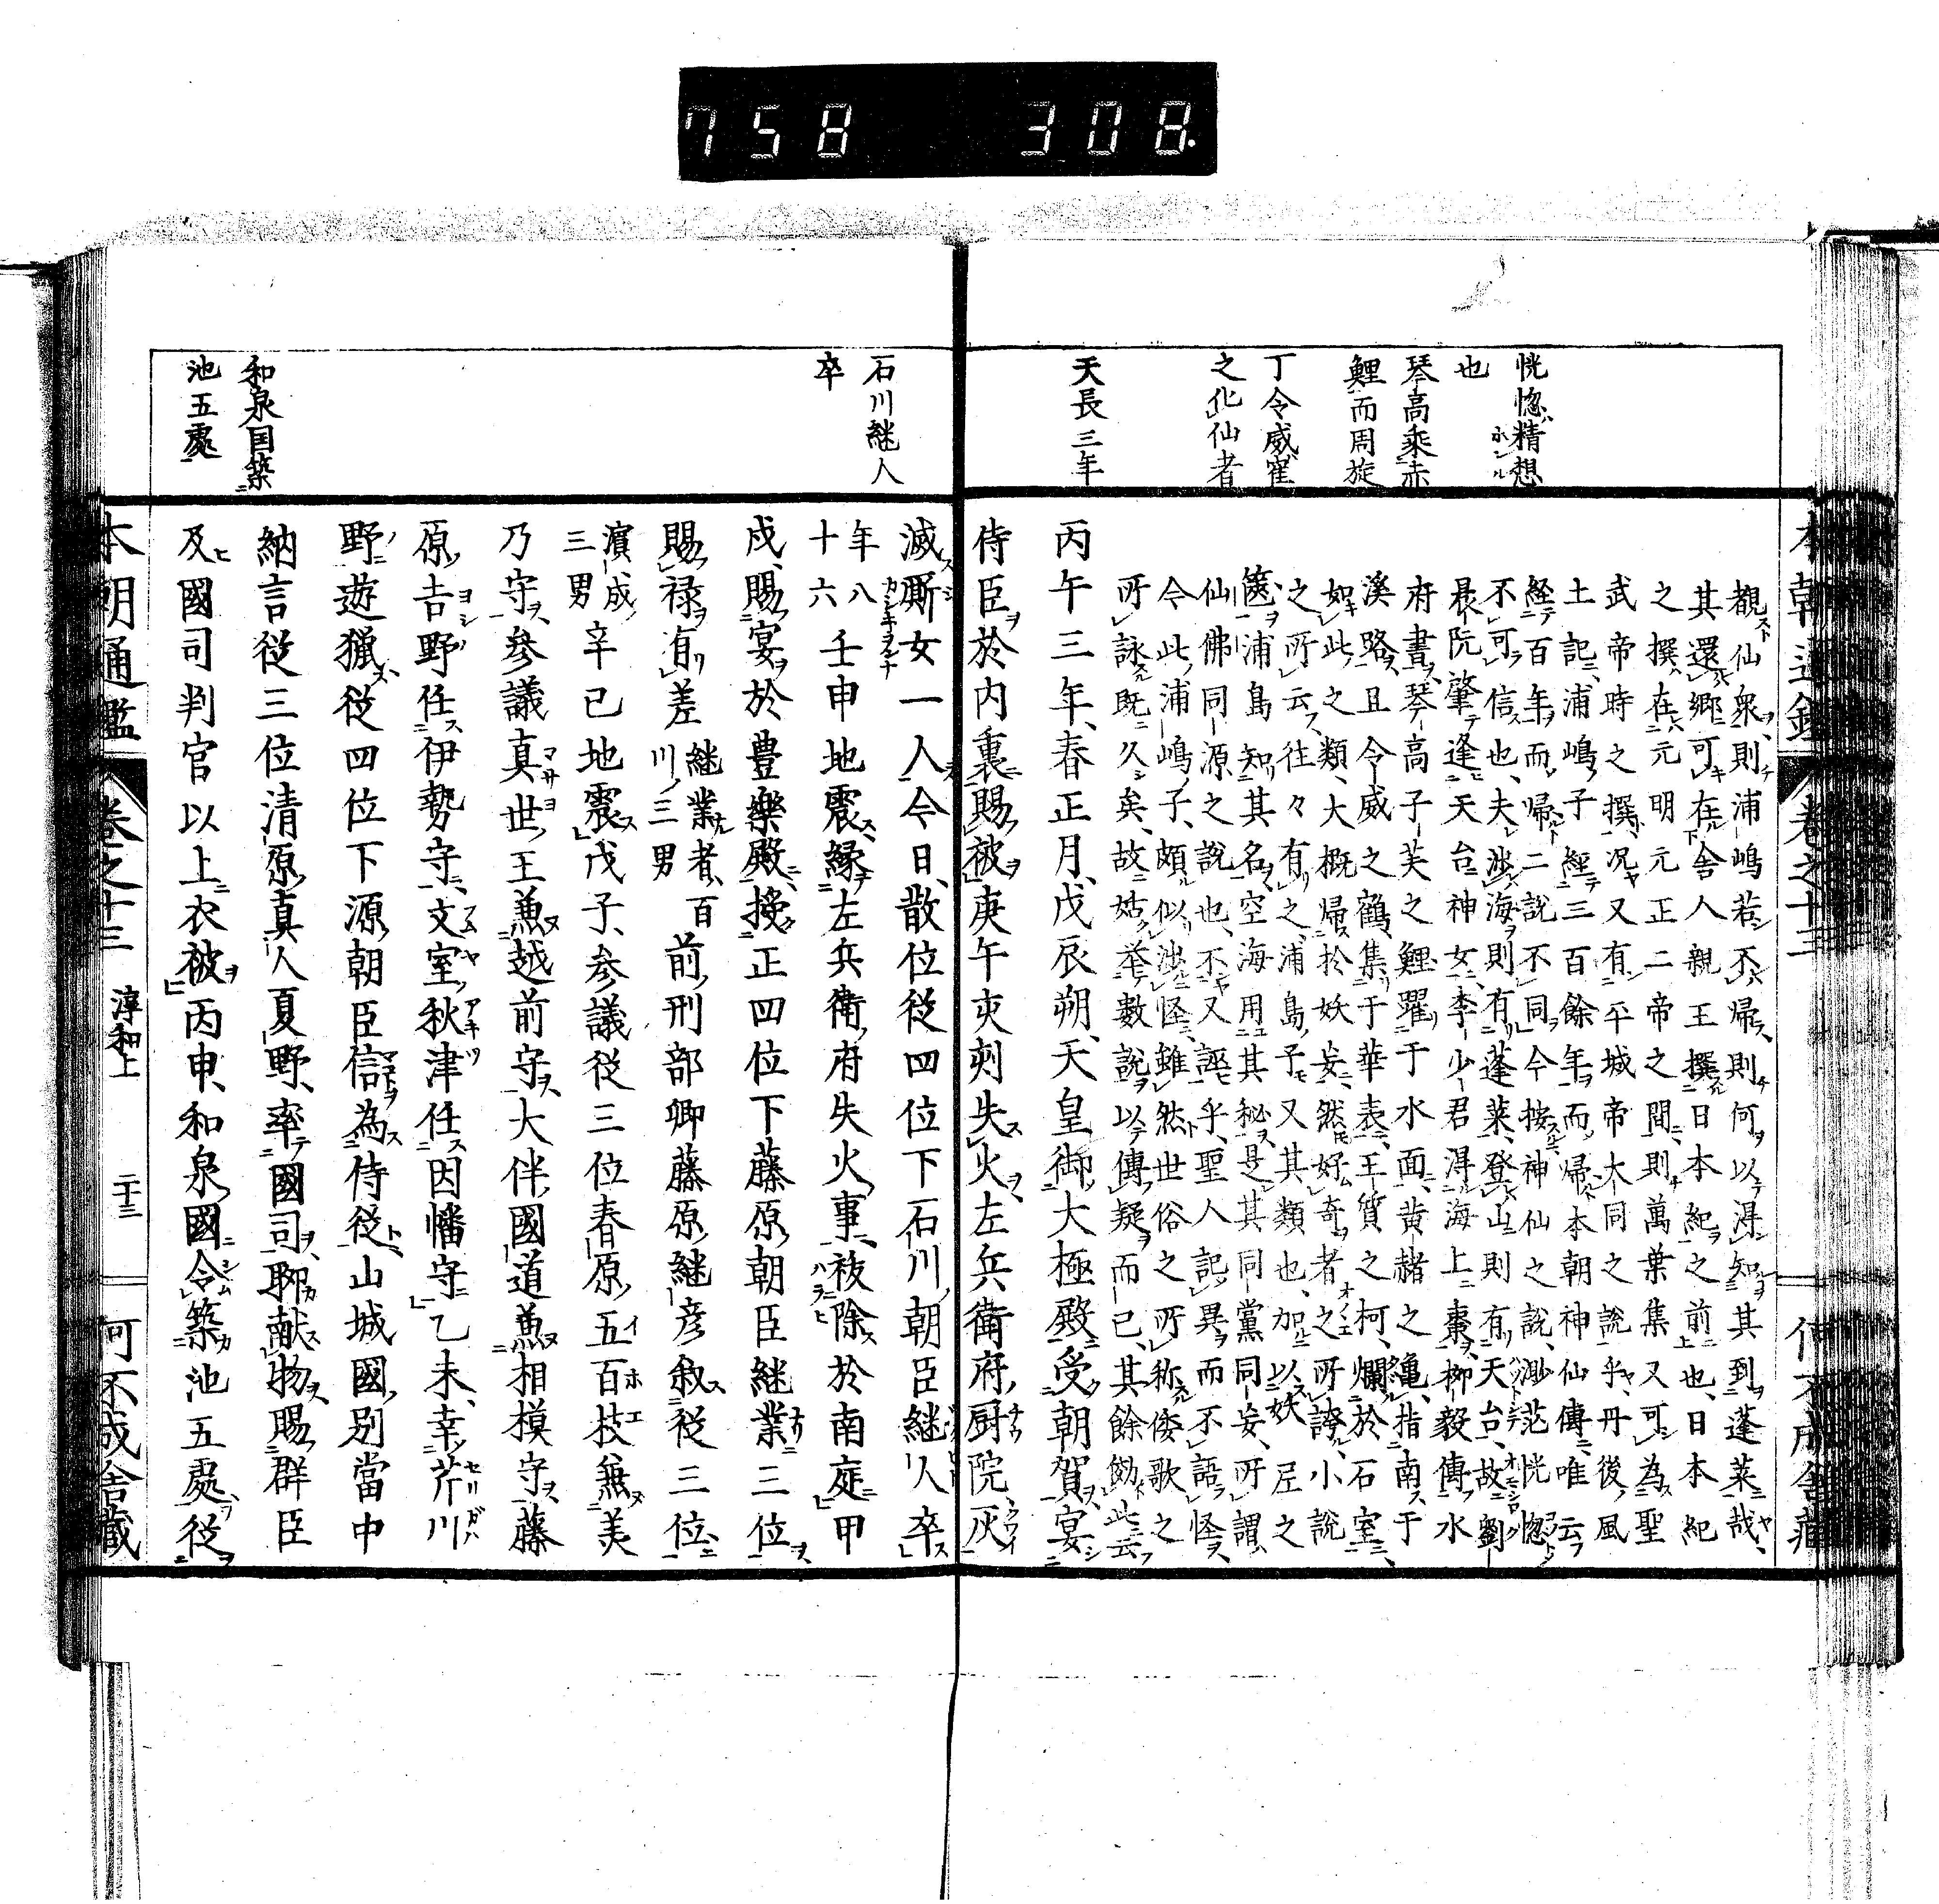 758 308.
恍惚精想
也
琴高乘赤
鯉而周旋
丁令威崔
之化仙者
天長三年
覩仙衆則浦嶋若不歸則何以得知其到蓬萊哉
其還郷可在舍人親王撰日本紀之前也日本紀
之撰在元明元正二帝之間則萬葉集又可為聖
武帝時之撰况又有平城帝大同之說乎丹後風
土記浦嶋子經三百餘年而歸本朝神仙傳唯云
経百年而歸二說不同今按神仙之說渺茫恍惚
不可信也夫渉海則有蓬萊登山則有天台故劉
晨阮肇逢天台神女李少君得海上棗柳毅傳水
府書琴高子英之鯉躍于水面黄赭之亀指南于
溪路且令威之鶴集于華表王質之柯爛於石室
如此之類大概歸於妖妄然好奇者之所誇小說
之所云往々有之浦島子又其類也加以妖尼之
篋浦島知其名空海用其秘是其同黨同妄所謂
仙佛同源之說也不又誣乎聖人記異而不語怪
今此浦嶋子頗似渉怪雖然世俗之所称倭歌之
所詠既久矣故姑举數說以傳疑而已其餘劬此云
丙午三年春正月戊辰朔天皇御大極殿受朝賀宴
侍臣於内裏賜被庚午夾刻失火左兵衛府厨院灰
本朝通鑑 卷之十三 淳和上 二十三 何不成舍蔵
石川継人
卒
和泉国築
池五處
滅厮女一人今日散位従四位下石川朝臣継人卒
年八
十六壬申地震縁左兵衛府失火事祓除於南庭甲
戌賜宴於豊樂殿授正四位下藤原朝臣継業三位
賜禄有差継業者百
川三男前刑部卿藤原継彦叙従三位
濱成
三男辛已地震戊子参議従三位春原五百枝兼美
乃守参議真世王兼越前守大伴國道兼相模守藤
原吉野任伊勢守文室秋津任因幡守乙未幸芹川
野遊獵従四位下源朝臣信為侍従山城國別當中
納言従三位清原真人夏野率國司聊献物賜群臣
及國司判官以上衣被丙申和泉國令築池五處従